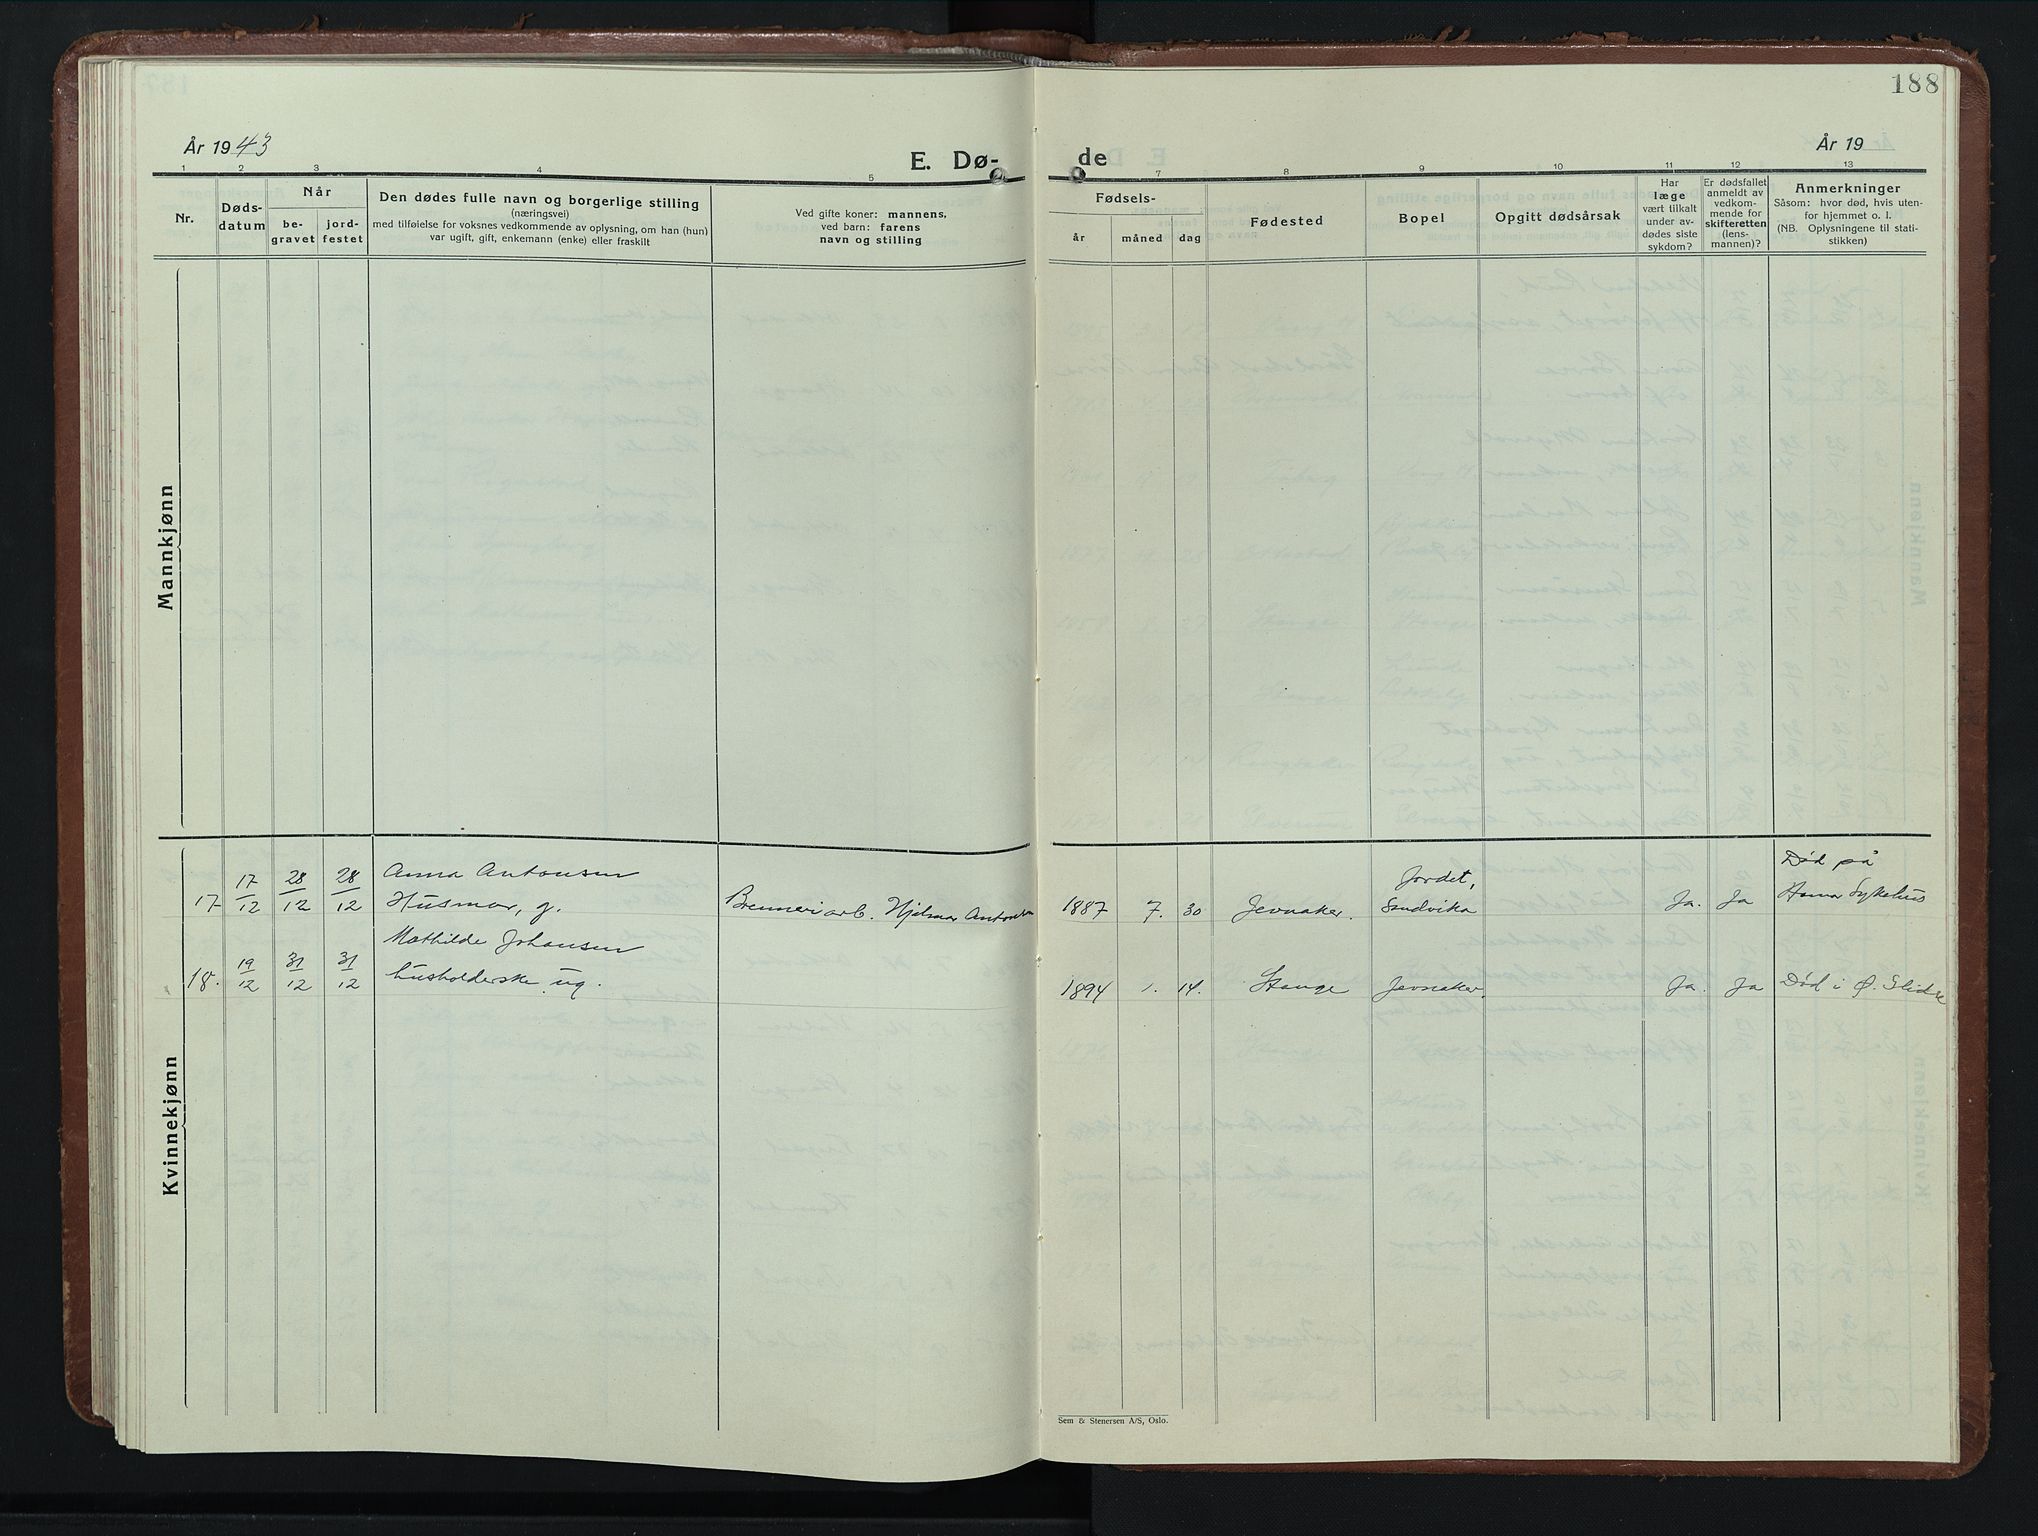 188
År 1943
E. Dø-
de
År 19
1 2 3 4 5
7 8 9 10 11 12 13
Nr.
Døds-
datum
Når
be-
gravet
jord-
festet
Den dødes fulle navn og borgerlige stilling
(næringsvei)
med tilføielse for voksnes vedkommende av oplysning, om han (hun)
var ugift, gift, enkemann (enke) eller fraskilt
Ved gifte koner: mannens,
ved barn: farens
navn og stilling
Fødsels-
år måned dag
Fødested
Bopel
Opgitt dødsårsak
Har
læge
vært tilkalt
under av-
dødes siste
sykdom?
Er dødsfallet
anmeldt av
vedkom-
mende for
skifteretten
(lens-
mannen)?
Anmerkninger
Såsom: hvor død, hvis uten-
for hjemmet o. l.
(NB. Oplysningene til stati-
stikken)
Mannkjønn
Kvinnekjønn
17 17/12 28/12 28/12 Anna Antonsen
Husmor, g. Brenneriarb. Hjalmar Antonsen 1887 7. 30 Jevnaker. Jordet,
Sandvika Ja. Ja Død på
Hamar Sykehus
18. 19/12 31/12 31/12 Mathilde Johansen
husholderske ug. 1894 1. 14. Stange Jevnaker. Ja. Ja Død i Ø. Slidre
Sem & Stenersen A/S, Oslo.